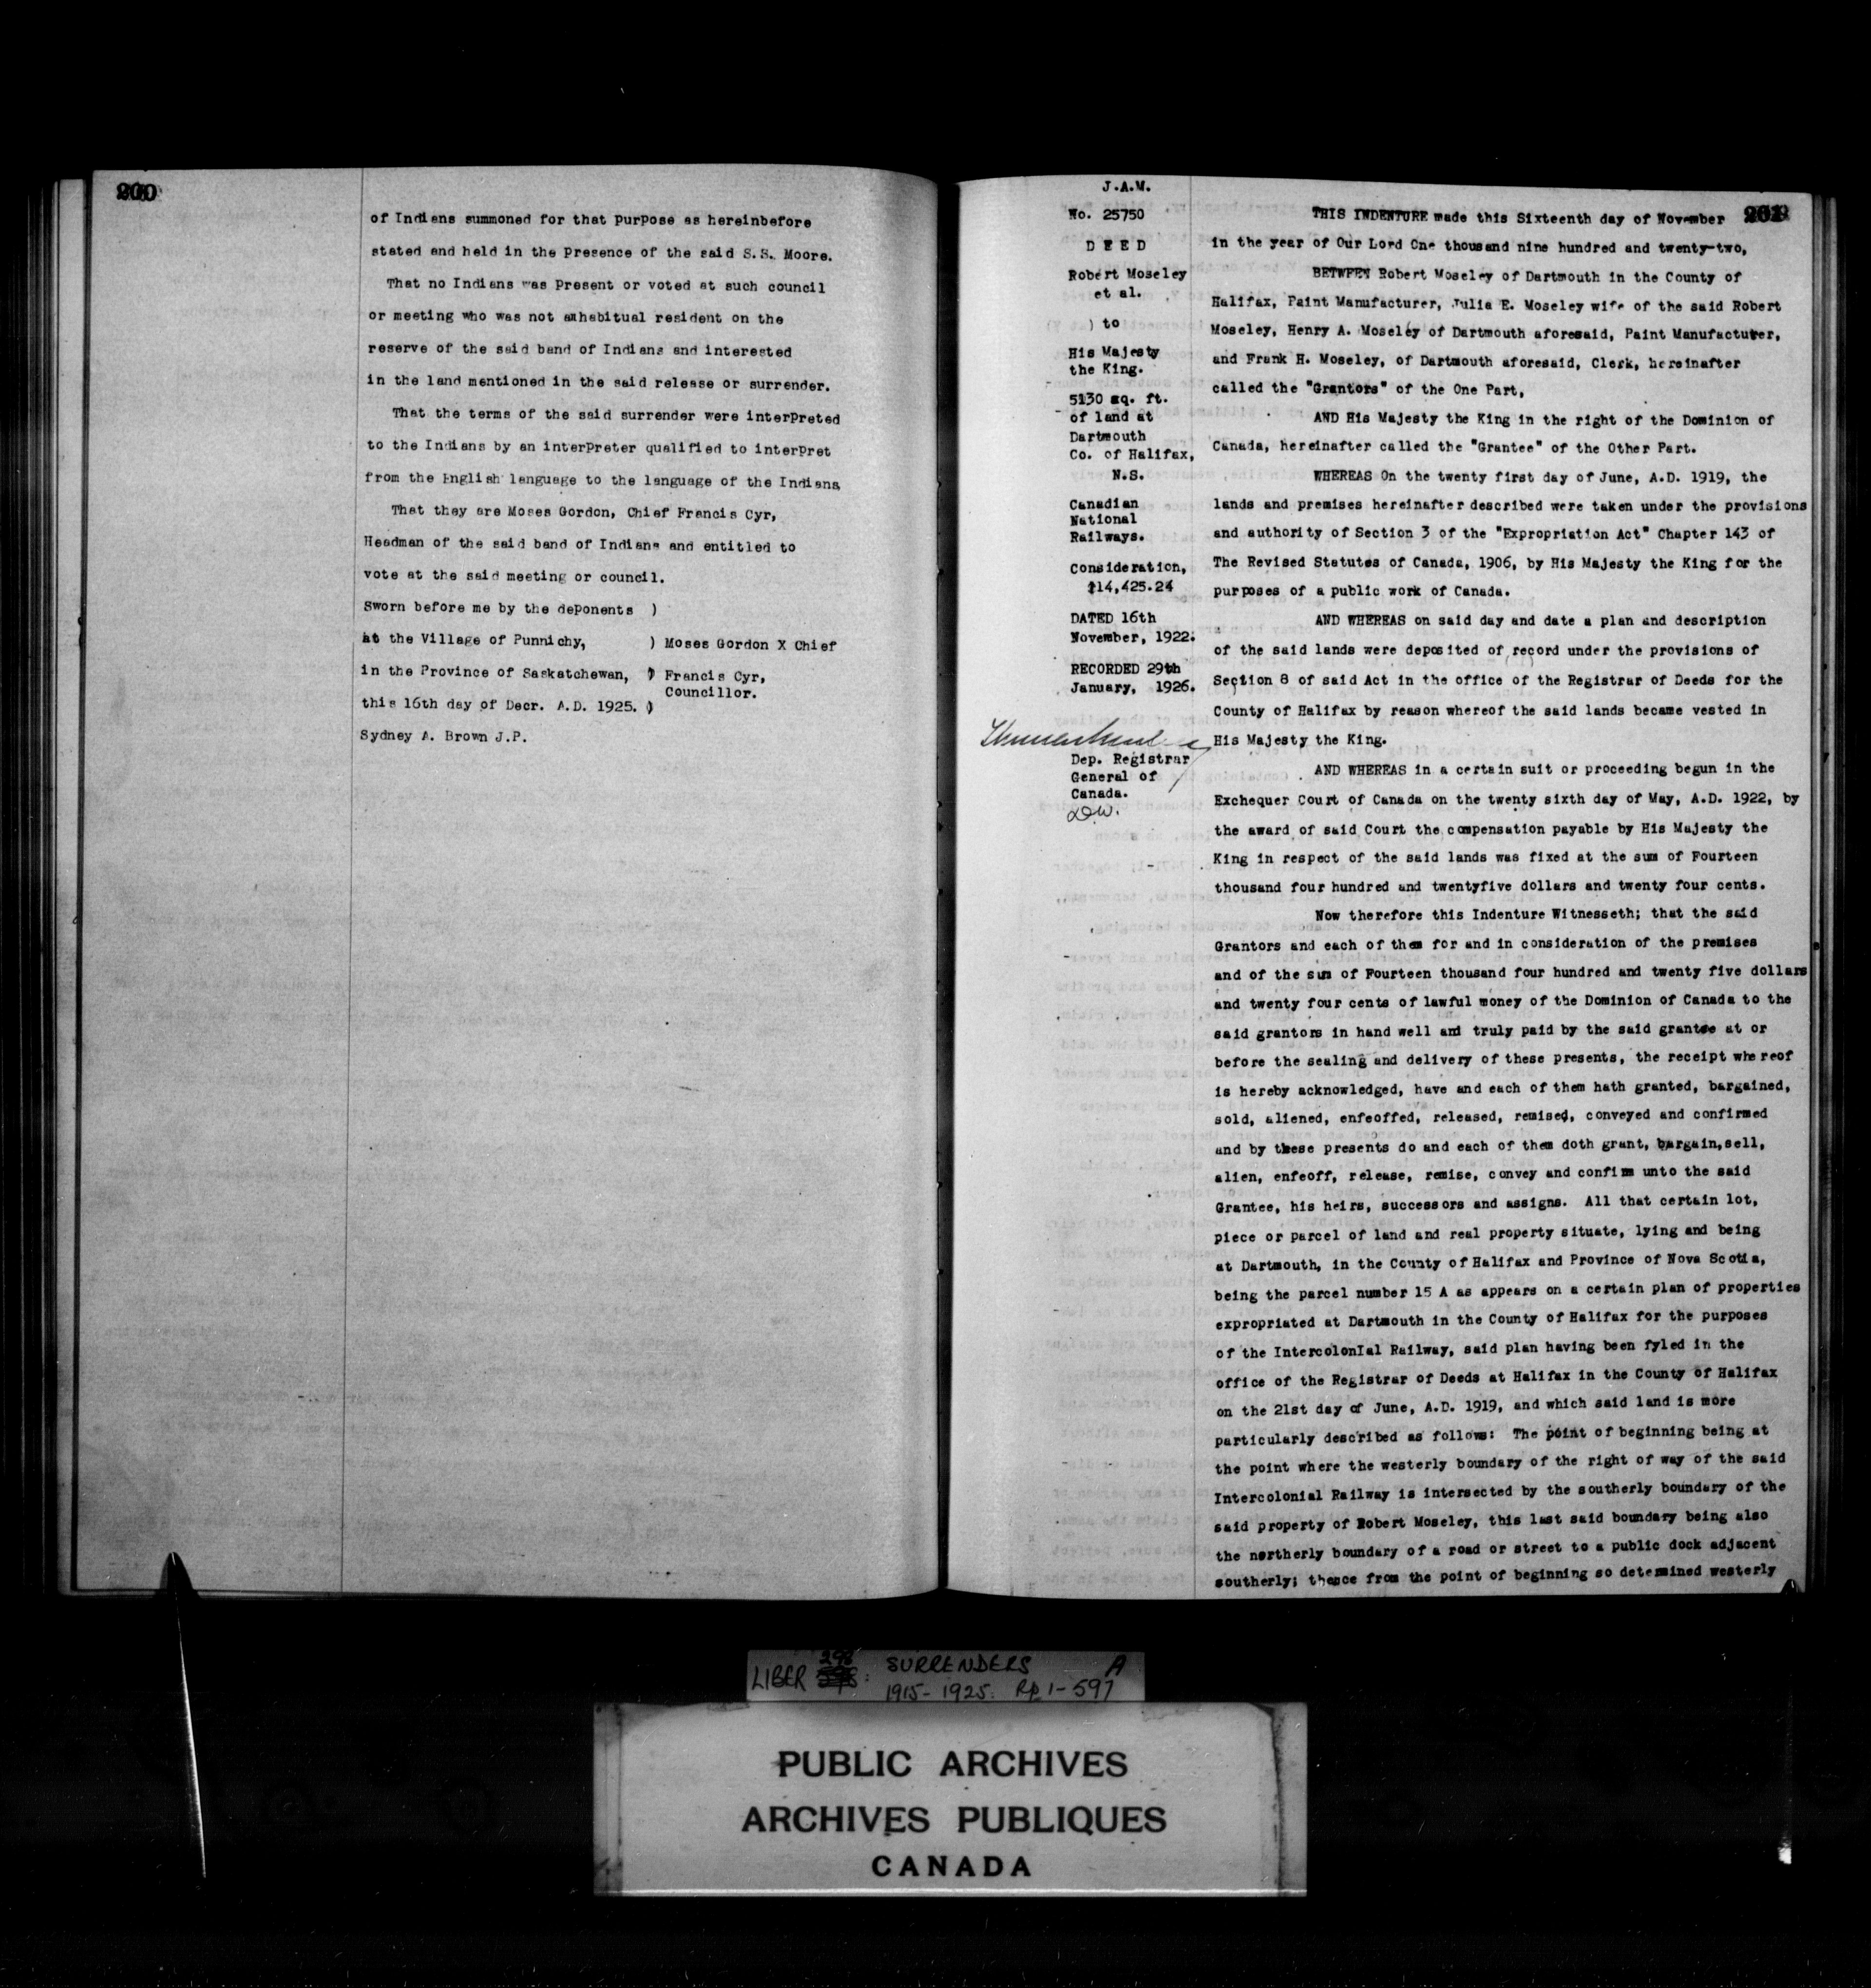 200
of Indians summoned for that purpose as hereinbefore
stated and held in the presence of the said S.S. Moore.
That no Indians was present or voted at such council
or meeting who was not anhabitual resident on the
reserve of the said band of Indians and interested
in the land mentioned in the said release or surrender.
That the terms of the said surrender were interpreted
to the Indians by an interpreter qualified to interpret
from the English language to the language of the Indians
That they are Moses Gordon, Chief Francis Cyr,
Headman of the said band of Indians and entitled to
vote at the said meeting or council.
Sworn before me by the deponents )
at the Village of Punnichy, ) Moses Gordon X Chief
in the Province of Saskatchewan, ) Francis Cyr,
Councillor.
this 16th day of Decr. A.D. 1925. )
Sydney A. Brown J.P.
J.A.M.
No. 25750
DEED
Robert Moseley
et al.
) to
His Majesty
the King.
5130 sq. ft.
of land at
Dartmouth
Co. of Halifax,
N.S.
Canadian
National
Railways.
Consideration,
$14,425.24
DATED 16th
November, 1922.
RECORDED 29th
January, 1926.
Dep. Registrar
General of
Canada.
THIS INDENTURE made this Sixteenth day of November
in the year of Our Lord One thousand nine hundred and twenty-two,
BETWEEN Robert Moseley of Dartmouth in the County of
Halifax, Paint Manufacturer, Julia E. Moseley wife of the said Robert
Moseley, Henry A. Moseley of Dartmouth aforesaid, Paint Manufacturer,
and Frank H. Moseley, of Dartmouth aforesaid, Clerk, hereinafter
called the "Grantors" of the One Part,
AND His Majesty the King in the right of the Dominion of
Canada, hereinafter called the "Grantee" of the Other Part.
WHEREAS On the twenty first day of June, A.D. 1919, the
lands and premises hereinafter described were taken under the provisions
and authority of Section 3 of the "Expropriation Act" Chapter 143 of
The Revised Statutes of Canada, 1906, by His Majesty the King for the
purposes of a public work of Canada.
AND WHEREAS on said day and date a plan and description
of the said lands were deposited of record under the provisions of
Section 8 of said Act in the office of the Registrar of Deeds for the
County of Halifax by reason whereof the said lands became vested in
His Majesty the King.
AND WHEREAS in a certain suit or proceeding begun in the
Exchequer Court of Canada on the twenty sixth day of May, A.D. 1922, by
the award of said Court the compensation payable by His Majesty the
King in respect of the said lands was fixed at the sum of Fourteen
thousand four hundred and twentyfive dollars and twenty four cents.
Now therefore this Indenture Witnesseth; that the said
Grantors and each of them for and in consideration of the premises
and of the sum of Fourteen thousand four hundred and twenty five dollars
and twenty four cents of lawful money of the Dominion of Canada to the
said grantors in hand well and truly paid by the said grantee at or
before the sealing and delivery of these presents, the receipt whereof
is hereby acknowledged, have and each of them hath granted, bargained,
sold, aliened, enfeoffed, released, remised, conveyed and confirmed
and by these presents do and each of them doth grant, bargain, sell,
alien, enfeoff, release, remise, convey and confirm unto the said
Grantee, his heirs, successors and assigns. All that certain lot,
piece or parcel of land and real property situate, lying and being
at Dartmouth, in the County of Halifax and Province of Nova Scotia,
being the parcel number 15 A as appears on a certain plan of properties
expropriated at Dartmouth in the County of Halifax for the purposes
of the IntercolonIal Railway, said plan having been fyled in the
office of the Registrar of Deeds at Halifax in the County of Halifax
on the 21st day of June, A.D. 1919, and which said land is more
particularly described as follows: The point of beginning being at
the point where the westerly boundary of the right of way of the said
Intercolonial Railway is intersected by the southerly boundary of the
said property of Robert Moseley, this last said boundary being also
the northerly boundary of a road or street to a public dock adjacent
southerly; thence from the point of beginning so determined westerly
LIBER 298: SURRENDERS A
1915-1925. Pp 1-597
PUBLIC ARCHIVES
ARCHIVES PUBLIQUES
CANADA